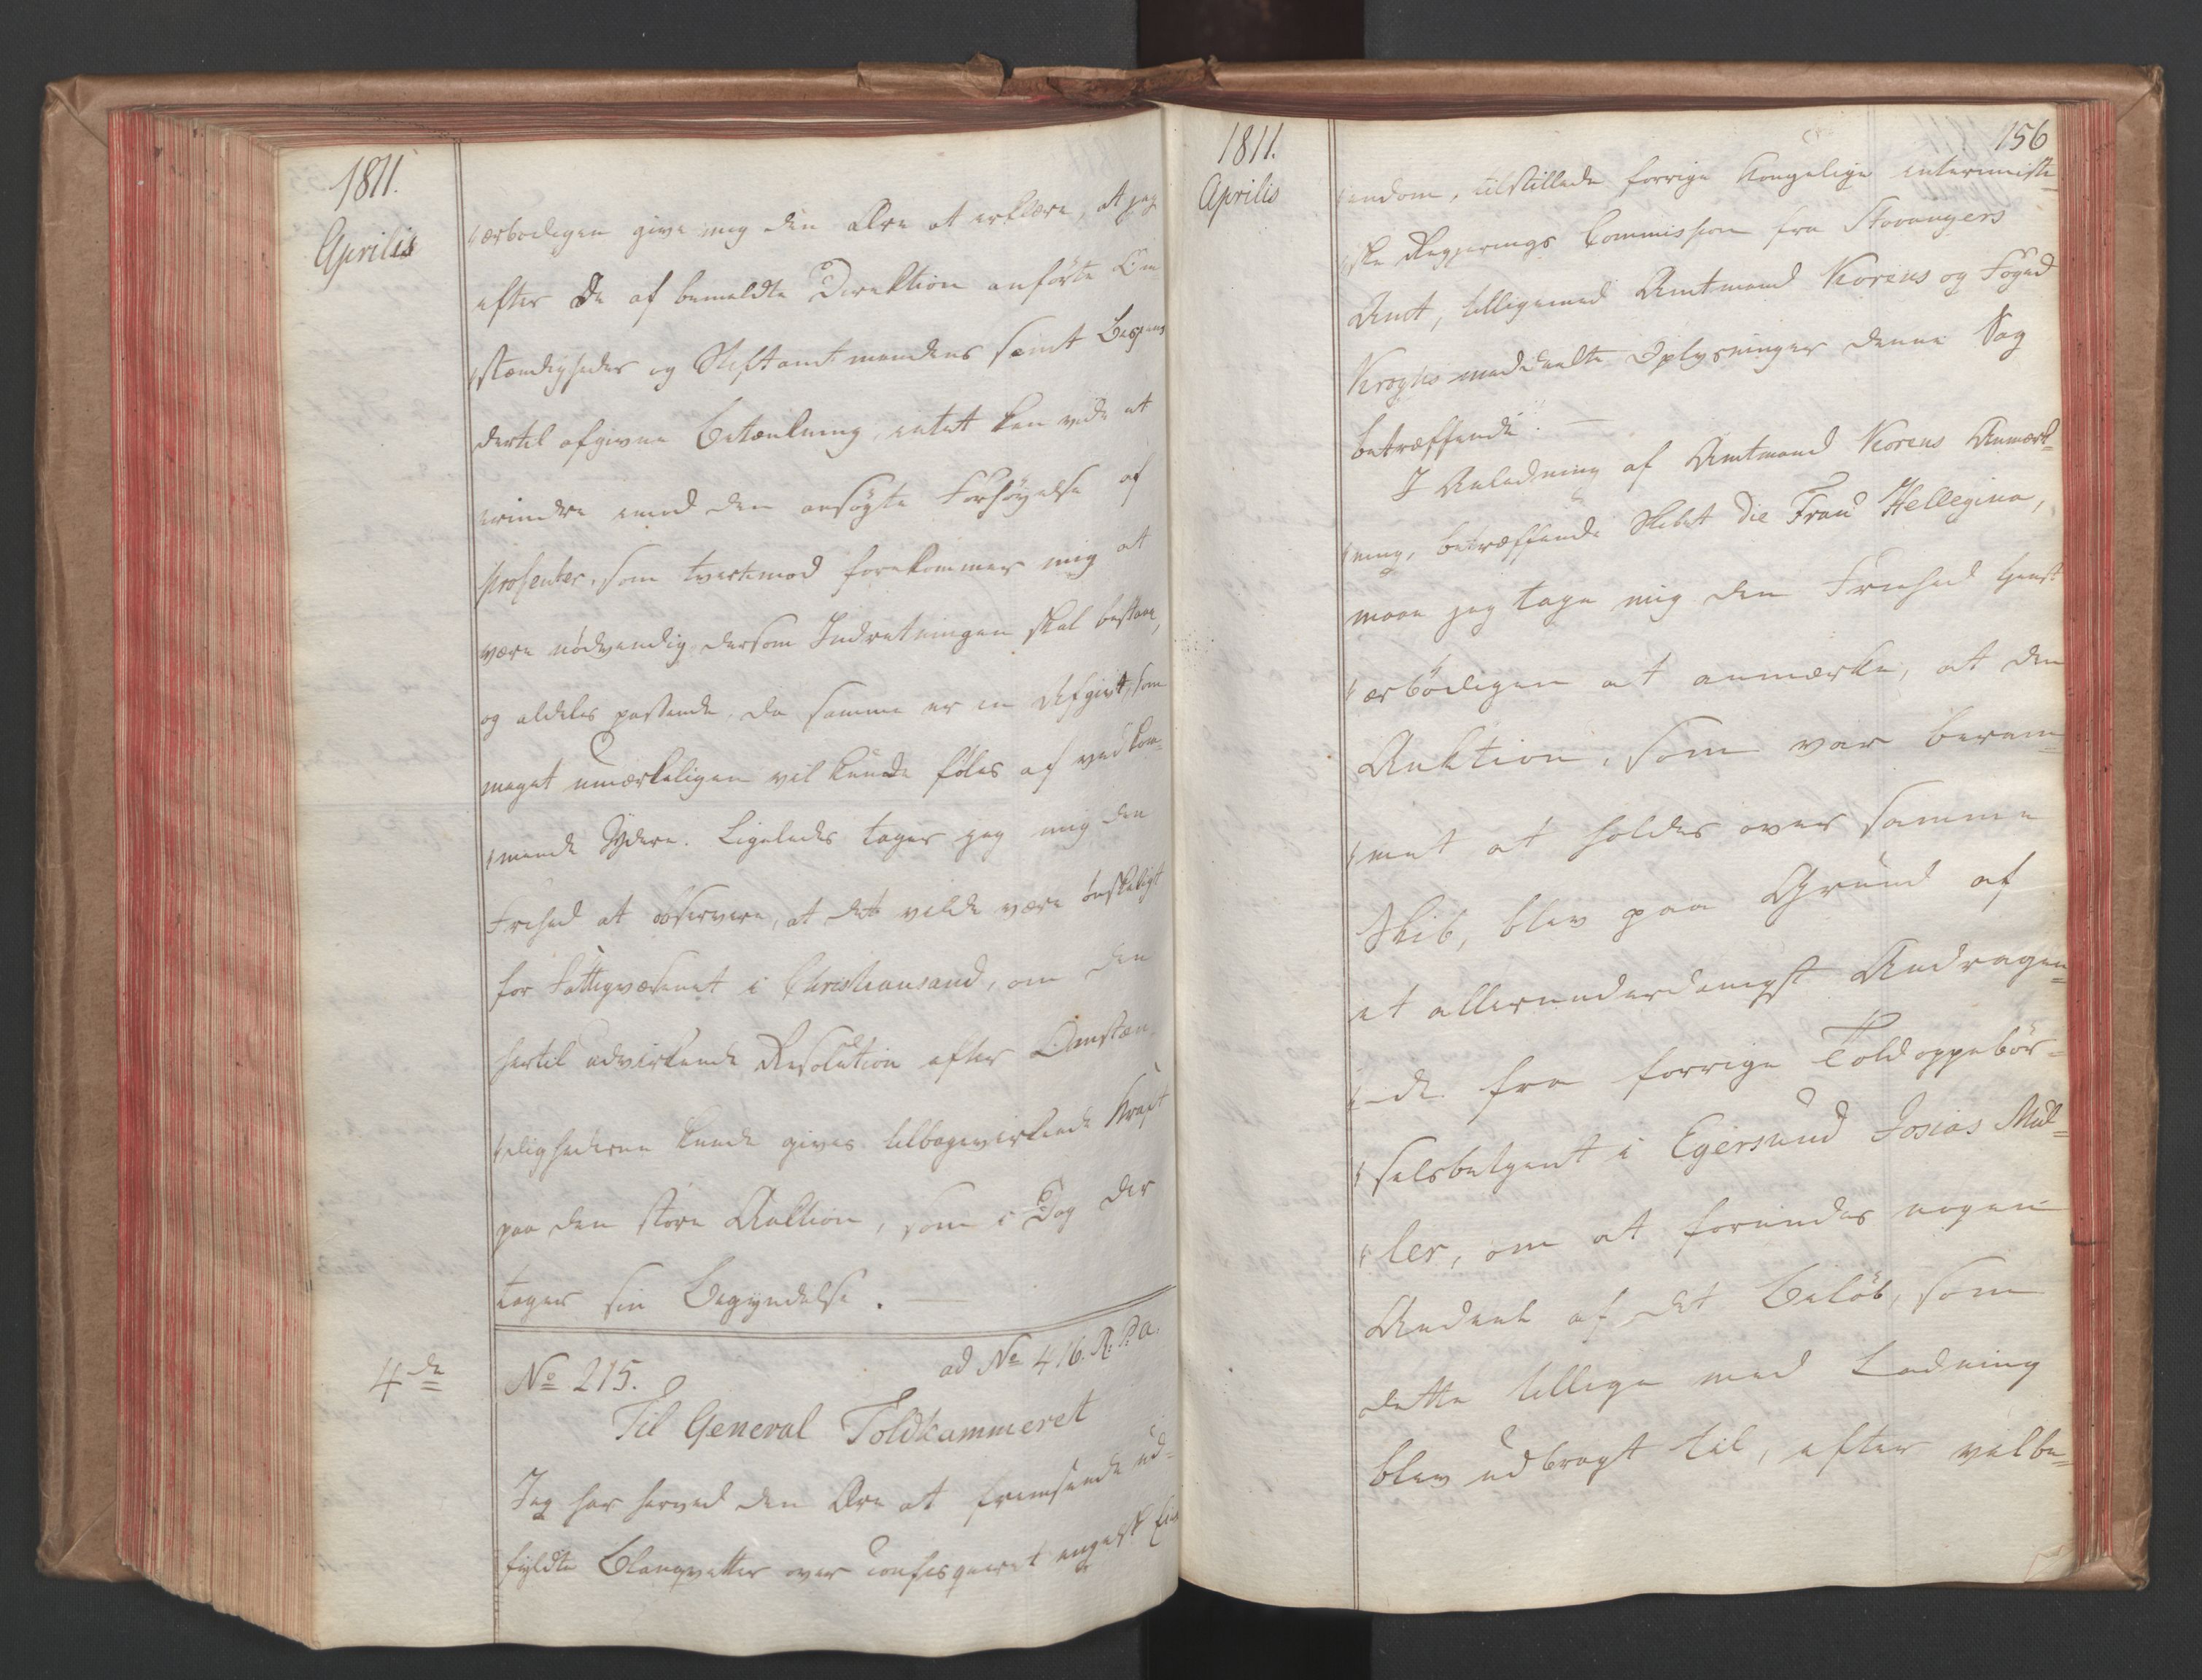 1811.
Aprilis
ærbødigen give mig den Ære at erklære, at jeg
efter De af bemeldte Direktion anførte Om
stændigheder og Stiftamtmandens samt Bispens
dertil afgivne Betænkning, intet kan vide at
erindre imod den ansøgte Forhøyelse af
Prosenter, som tvertimod forekommer mig at
være nødvendig dersom Indretningen skal bestaae,
og aldeles passende, da samme er en Afgivt, som
meget umærkeligen vil kunde føles af vedkom-
mende Ydere. Ligeledes tager jeg mig den
Frihed at observere, at det vilde være ønskeligt
for Fattigvæsenet i Christiansand, om den
hertil udvirkende Resolution efter Omstæn-
delighederne kunde gives tilbagevirkende Kraft
paa den store Auktion, som i Dag der
tager sin Begyndelse. —
4de
No 215.
ad No 416. R. P. a.
Til General Toldkammeret
Jeg har herved den Ære at fremsende ud-
fyldte Blanqvetter over confisqueret engelsk Ei
1811.
Aprilis
156
endom, tilstillede forrige Kongelige interimisti-
ske Regjerings Commission fra Stavangers
Amt, tilligemed Amtmand Korens og Foged
Kroghs meddeelte Oplysninger denne Sag
betræffende. —
I Anledning af Amtmand Korens Anmærk-
ning, betræffende Skibet Die Frau Hellegina,
maae jeg tage mig den Friehed tienst
ærbödigen at anmærke, at den
Auktion, som var beram-
met at holdes over samme
Skib, blev paa Grund af
et allerunderdanigst Andragen-
de fra forrige Toldoppebör-
selsbetjent i Egersund Josias Mül-
ler, om at forundes nogen
Andeel af det Belöb, som
dette tillige med Ladning
blev udbragt til, efter velbe-